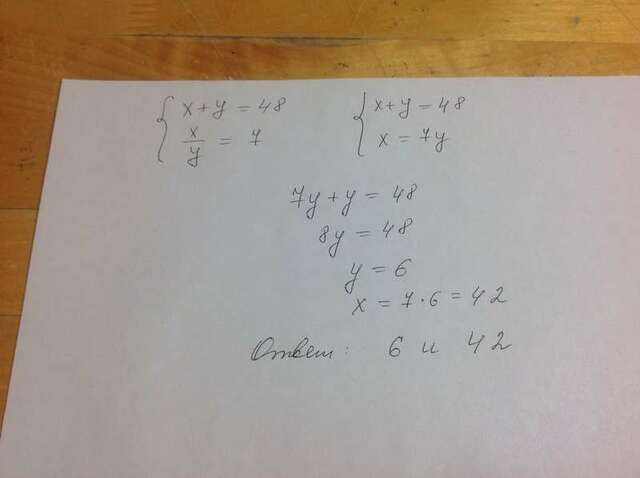 x+y = 48
x/y = 7
x+y = 48
x = 7y
7y+y = 48
8y = 48
y = 6
x = 7·6 = 42
Ответ: 6 и 42